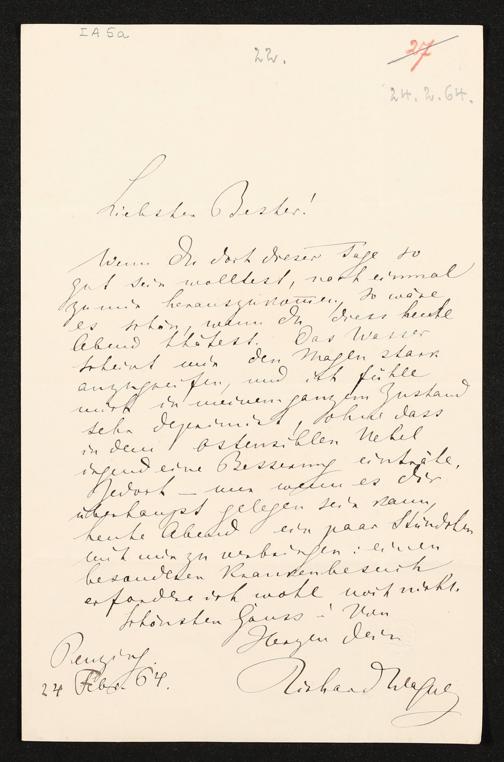 IA5a
22.
27
24. 2. 64.
Liebster Bester!
Wenn Du doch dieser Tage so
gut sein wolltest, noch einmal
zu mir herauszukommen, so wäre
es schön, wenn Du diess heute
Abend thätest. Das Wasser
scheint mir den Magen stark
anzugreifen, und ich fühle
mich in meinem ganzen Zustand
sehr deprimirt, ohne dass
in dem ostensiblen Uebel
irgend eine Besserung einträte.
Jedoch – nur wenn es dir
überhaupt gelegen sein kann,
heute Abend ein paar Stündchen
mit mir zu verbringen: einen
besonderen Krankenbesuch
erfordere ich wohl noch nicht.
Schönsten Gruss! Von
Herzen Dein
Penzing.
24 Febr. 64.
Richard Wagner